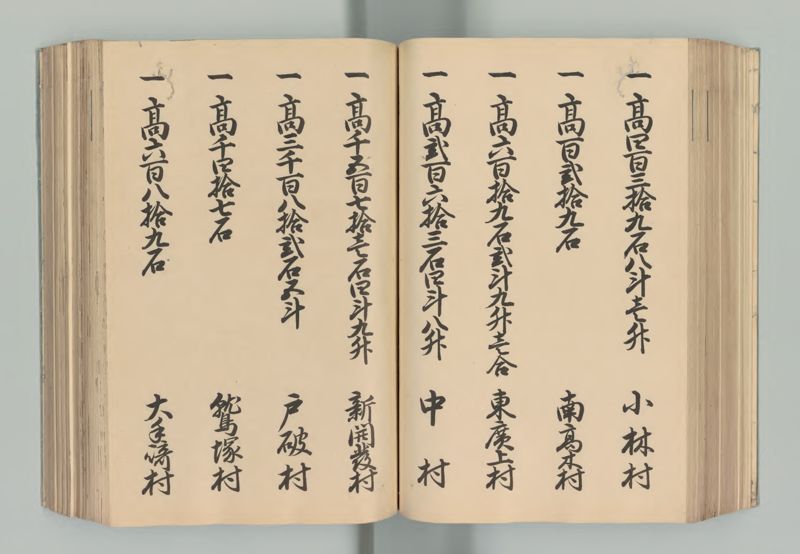 一高四百三拾九石八斗壱升 小林村
一高百弐拾九石 南高木村
一高六百拾九石弐斗九升壱合 東廣上村
一高弐百六拾三石四斗八升 中村
一高千五百七拾壱石四斗九升 新開發村
一高三千百八拾弐石五斗 戸破村
一高千四拾七石 鷲塚村
一高六百八拾九石 大手崎村